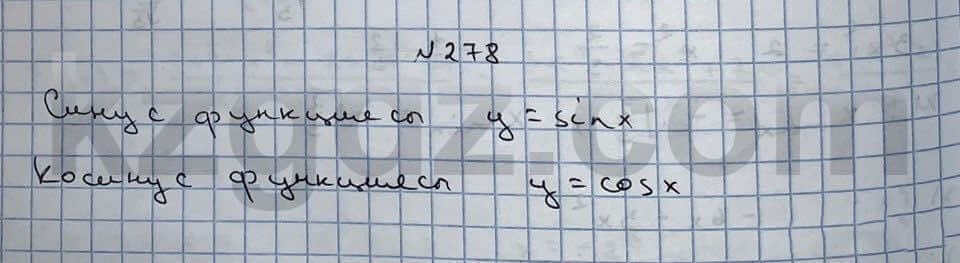 №278
Синус функциясы y = sin x
Косинус функциясы y = cos x
kzgdz.com